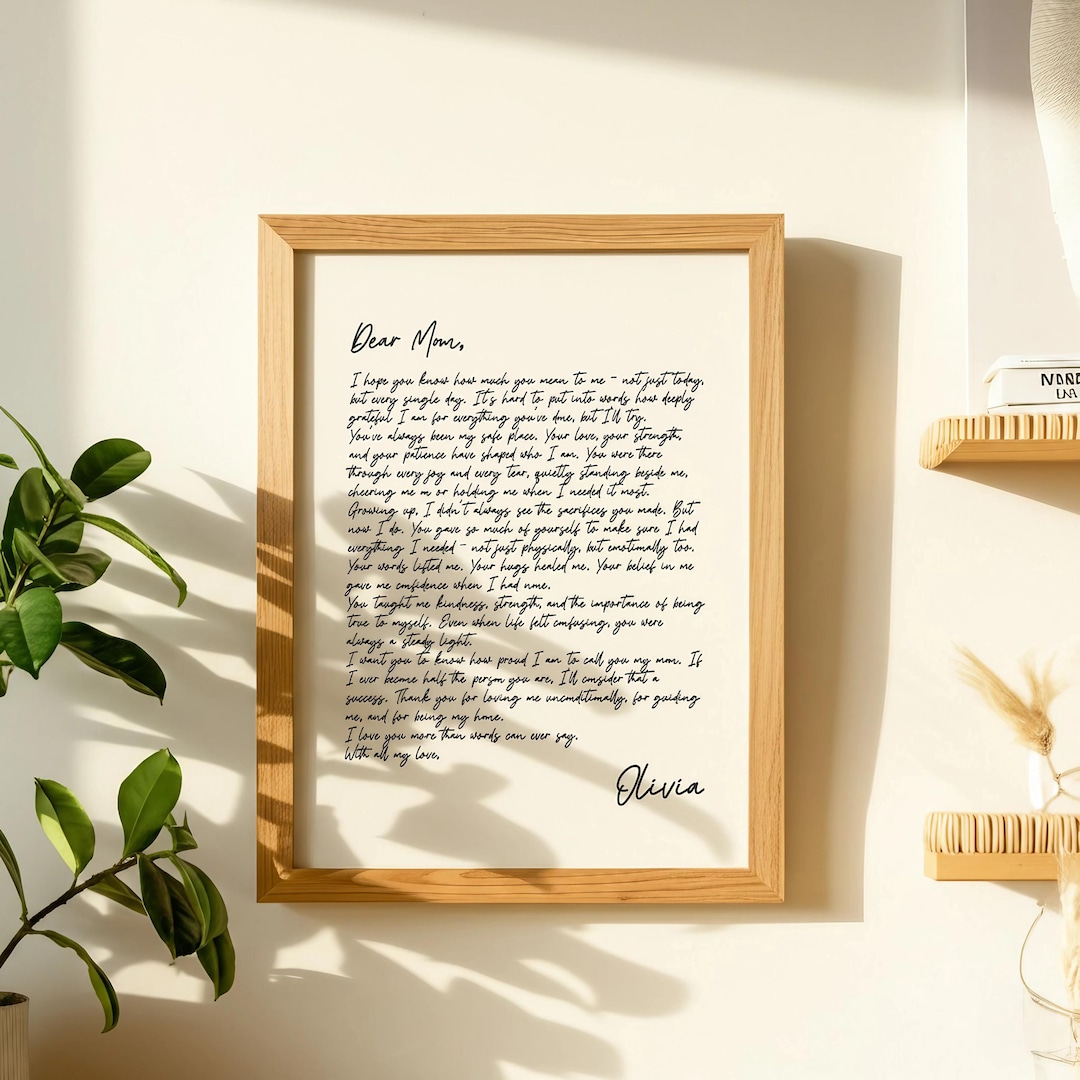 Dear Mom,
I hope you know how much you mean to me - not just today,
but every single day. It's hard to put into words how deeply
grateful I am for everything you've done, but I'll try.
You've always been my safe place. Your love, your strength,
and your patience have shaped who I am. You were there
through every joy and every tear, quietly standing beside me,
cheering me on or holding me when I needed it most.
Growing up, I didn't always see the sacrifices you made. But
now I do. You gave so much of yourself to make sure I had
everything I needed - not just physically, but emotionally too.
Your words lifted me. Your hugs healed me. Your belief in me
gave me confidence when I had none.
You taught me kindness, strength, and the importance of being
true to myself. Even when life felt confusing, you were
always a steady light.
I want you to know how proud I am to call you my mom. If
I ever become half the person you are, I'll consider that a
success. Thank you for loving me unconditionally, for guiding
me, and for being my home.
I love you more than words can ever say.
With all my love,
Olivia